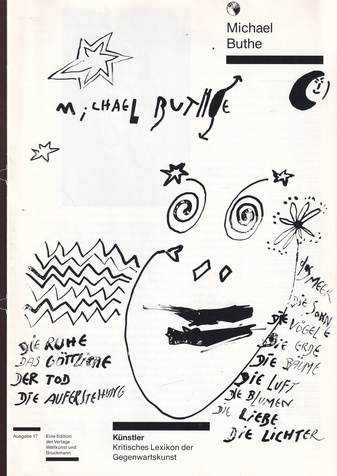 Michael
Buthe
MiCHAEL BUTHE
DAS MEER
DIE SONNE
DIE VÖGEL
DIE ERDE
DIE BÄUME
DIE LUFT
DIE BLUMEN
DIE LIEBE
DIE LICHTER
DIE RUHE
DAS GÖTTLICHE
DER TOD
DIE AUFERSTEHUNG
Ausgabe 17
Eine Edition
der Verlage
Weltkunst und
Bruckmann
Künstler
Kritisches Lexikon der
Gegenwartskunst